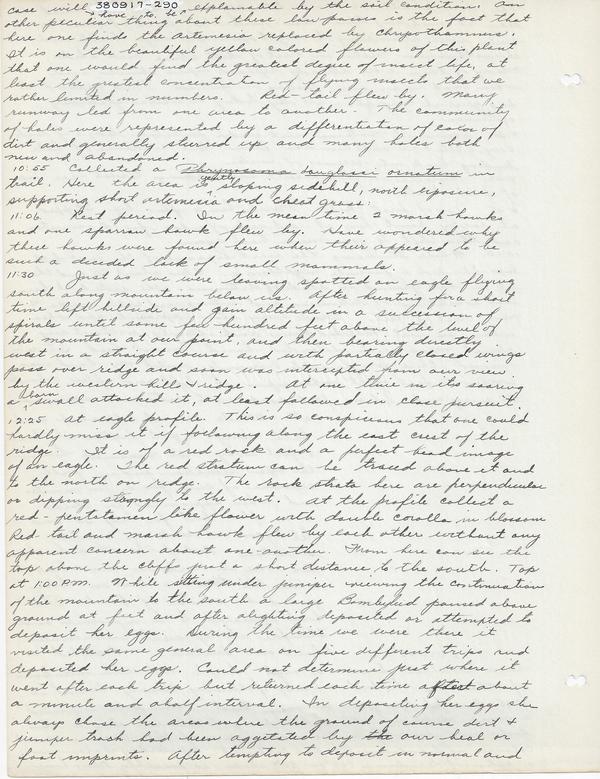 case will have to be explainable by the soil condition. An
380917-290
other peculiar thing about these low passes is the fact that
here one finds the Artemesia replaced by Chrysothamnus.
It is on the beautiful yellow colored flowers of this plant
that one would find the greatest degree of insect life, at
least the greatest concentration of flying insects that we
rather limited in numbers. Red-tail flew by. Many
runway led from one area to another. The community
of holes were represented by a differentiation of color of
dirt and generally stirred up and many holes both
new and abandoned.
10:55 Collected a Phrynosoma douglassi ornatum in
trail. Here the area is gently sloping sidehill, north exposure,
supporting short artemesia and cheat grass.
11:06 Rest period. In the mean time 2 marsh hawks
and one sparrow hawk flew by. Have wondered why
these hawks were found here when their appeared to be
such a decided lack of small mammals.
11:30 Just as we were leaving spotted an eagle flying
south along mountain below us. After hunting for a short
time left hillside and gain altitude in a succession of
spirals until some few hundred feet above the level of
the mountain at our point, and then bearing directly
west in a straight course and with partially closed wings
pass over ridge and soon was intercepted from our view
by the western hill & ridge. At one time in its soaring
a barn swall attacked it, at least followed in close pursuit.
12:25 At eagle profile. This is so conspicious that one could
hardly miss it if following along the east crest of the
ridge. It is of a red rock and a perfect head image
of an eagle. The red stratum can be traced above it and
to the north on ridge. The rock strata here are perpendicular
or dipping strongly to the west. At the profile collect a
red-pentstamen like flower with double corolla in blossom
Red tail and marsh hawk flew by each other without any
apparent concern about one-another. From here can see the
top above the cliffs just a short distance to the south. Top
at 1:00 P.M. While sitting under juniper viewing the continuation
of the mountain to the south a large Bombylid paused above
ground at feet and after alighting deposited or attempted to
deposit her eggs. During the time we were there it
visited the same general area on five different trips and
deposited her eggs. Could not determine just where it
went after each trip but returned each time after about
a minute and a half interval. In depositing her eggs she
always chose the areas where the ground of course dirt &
juniper trash had been aggetated by the our heal or
foot imprints. After tempting to deposit in normal and